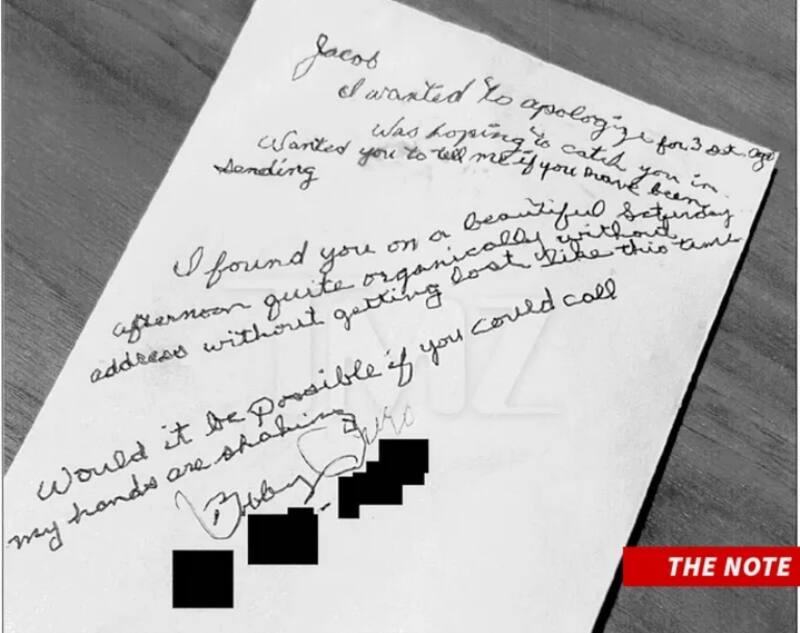 Jacob
I wanted to apologize for 3 Sat. ago
Was hoping to catch you in
Wanted you to tell me if you have been
sending
I found you on a beautiful Saturday
afternoon quite organically without
address without getting lost like this time
Would it be possible if you could call
my hands are shaking
Bobby
TMZ
THE NOTE